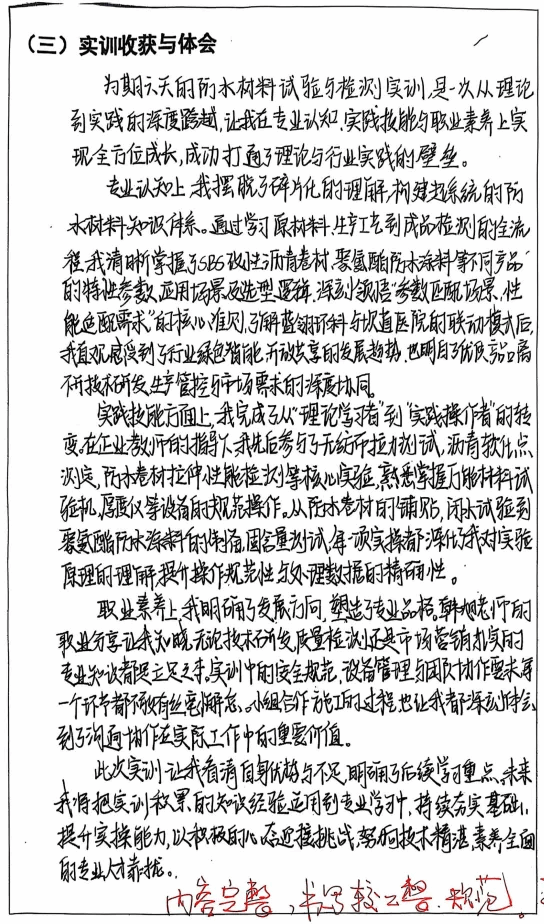 （三）实训收获与体会
为期六天的防水材料试验与检测实训,是一次从理论
到实践的深度跨越,让我在专业认知、实践技能与职业素养上实
现全方位成长,成功打通了理论与行业实践的壁垒。
专业认知上,我摆脱了碎片化的理解,构建起系统的防
水材料知识体系。通过学习原材料、生产工艺到成品检测的全流
程,我清晰掌握了SBS改性沥青卷材、聚氨酯防水涂料等不同产品
的特性参数、应用场景及选型逻辑,深刻领悟“参数匹配场景,性
能适配需求”的核心准则,了解蓝翎环科与坝道医院的联动模式后,
我直观感受到了行业绿色智能、开放共享的发展趋势,也明白了优质产品离
不开技术研发、生产管控与市场需求的深度协同。
实践技能方面上,我完成了从“理论学习者”到“实践操作者”的转
变。在企业教师的指导下,我先后参与了无纺布拉力测试,沥青软化点
测定,防水卷材拉伸性能检测等核心实验,熟悉掌握万能材料试
验机,厚度仪等设备的规范操作。从防水卷材的铺贴,闭水试验到
聚氨酯防水涂料的制备,固含量测试,每一项实操都深化了我对实验
原理的理解,提升操作规范性与处理数据的精确性。
职业素养上,我明确了发展方向,塑造了专业品格,韩旭老师的
职业分享让我知晓,无论技术研发,质量检测还是市场营销,扎实的
专业知识都是立足之本。实训中的安全规范,设备管理与团队协作要求每
一个环节都不敢有丝毫懈怠。小组合作施工的过程也让我都深刻体会
到了沟通协作在实际工作中的重要价值。
此次实训让我看清自身优势与不足,明确了后续学习重点,未来
我将把实训积累的知识经验运用到专业学习中,持续夯实基础,
提升实操能力,以积极的心态迎接挑战,努力向技术精湛,素养全面
的专业人才靠拢。
内容完整，书写较工整、规范。